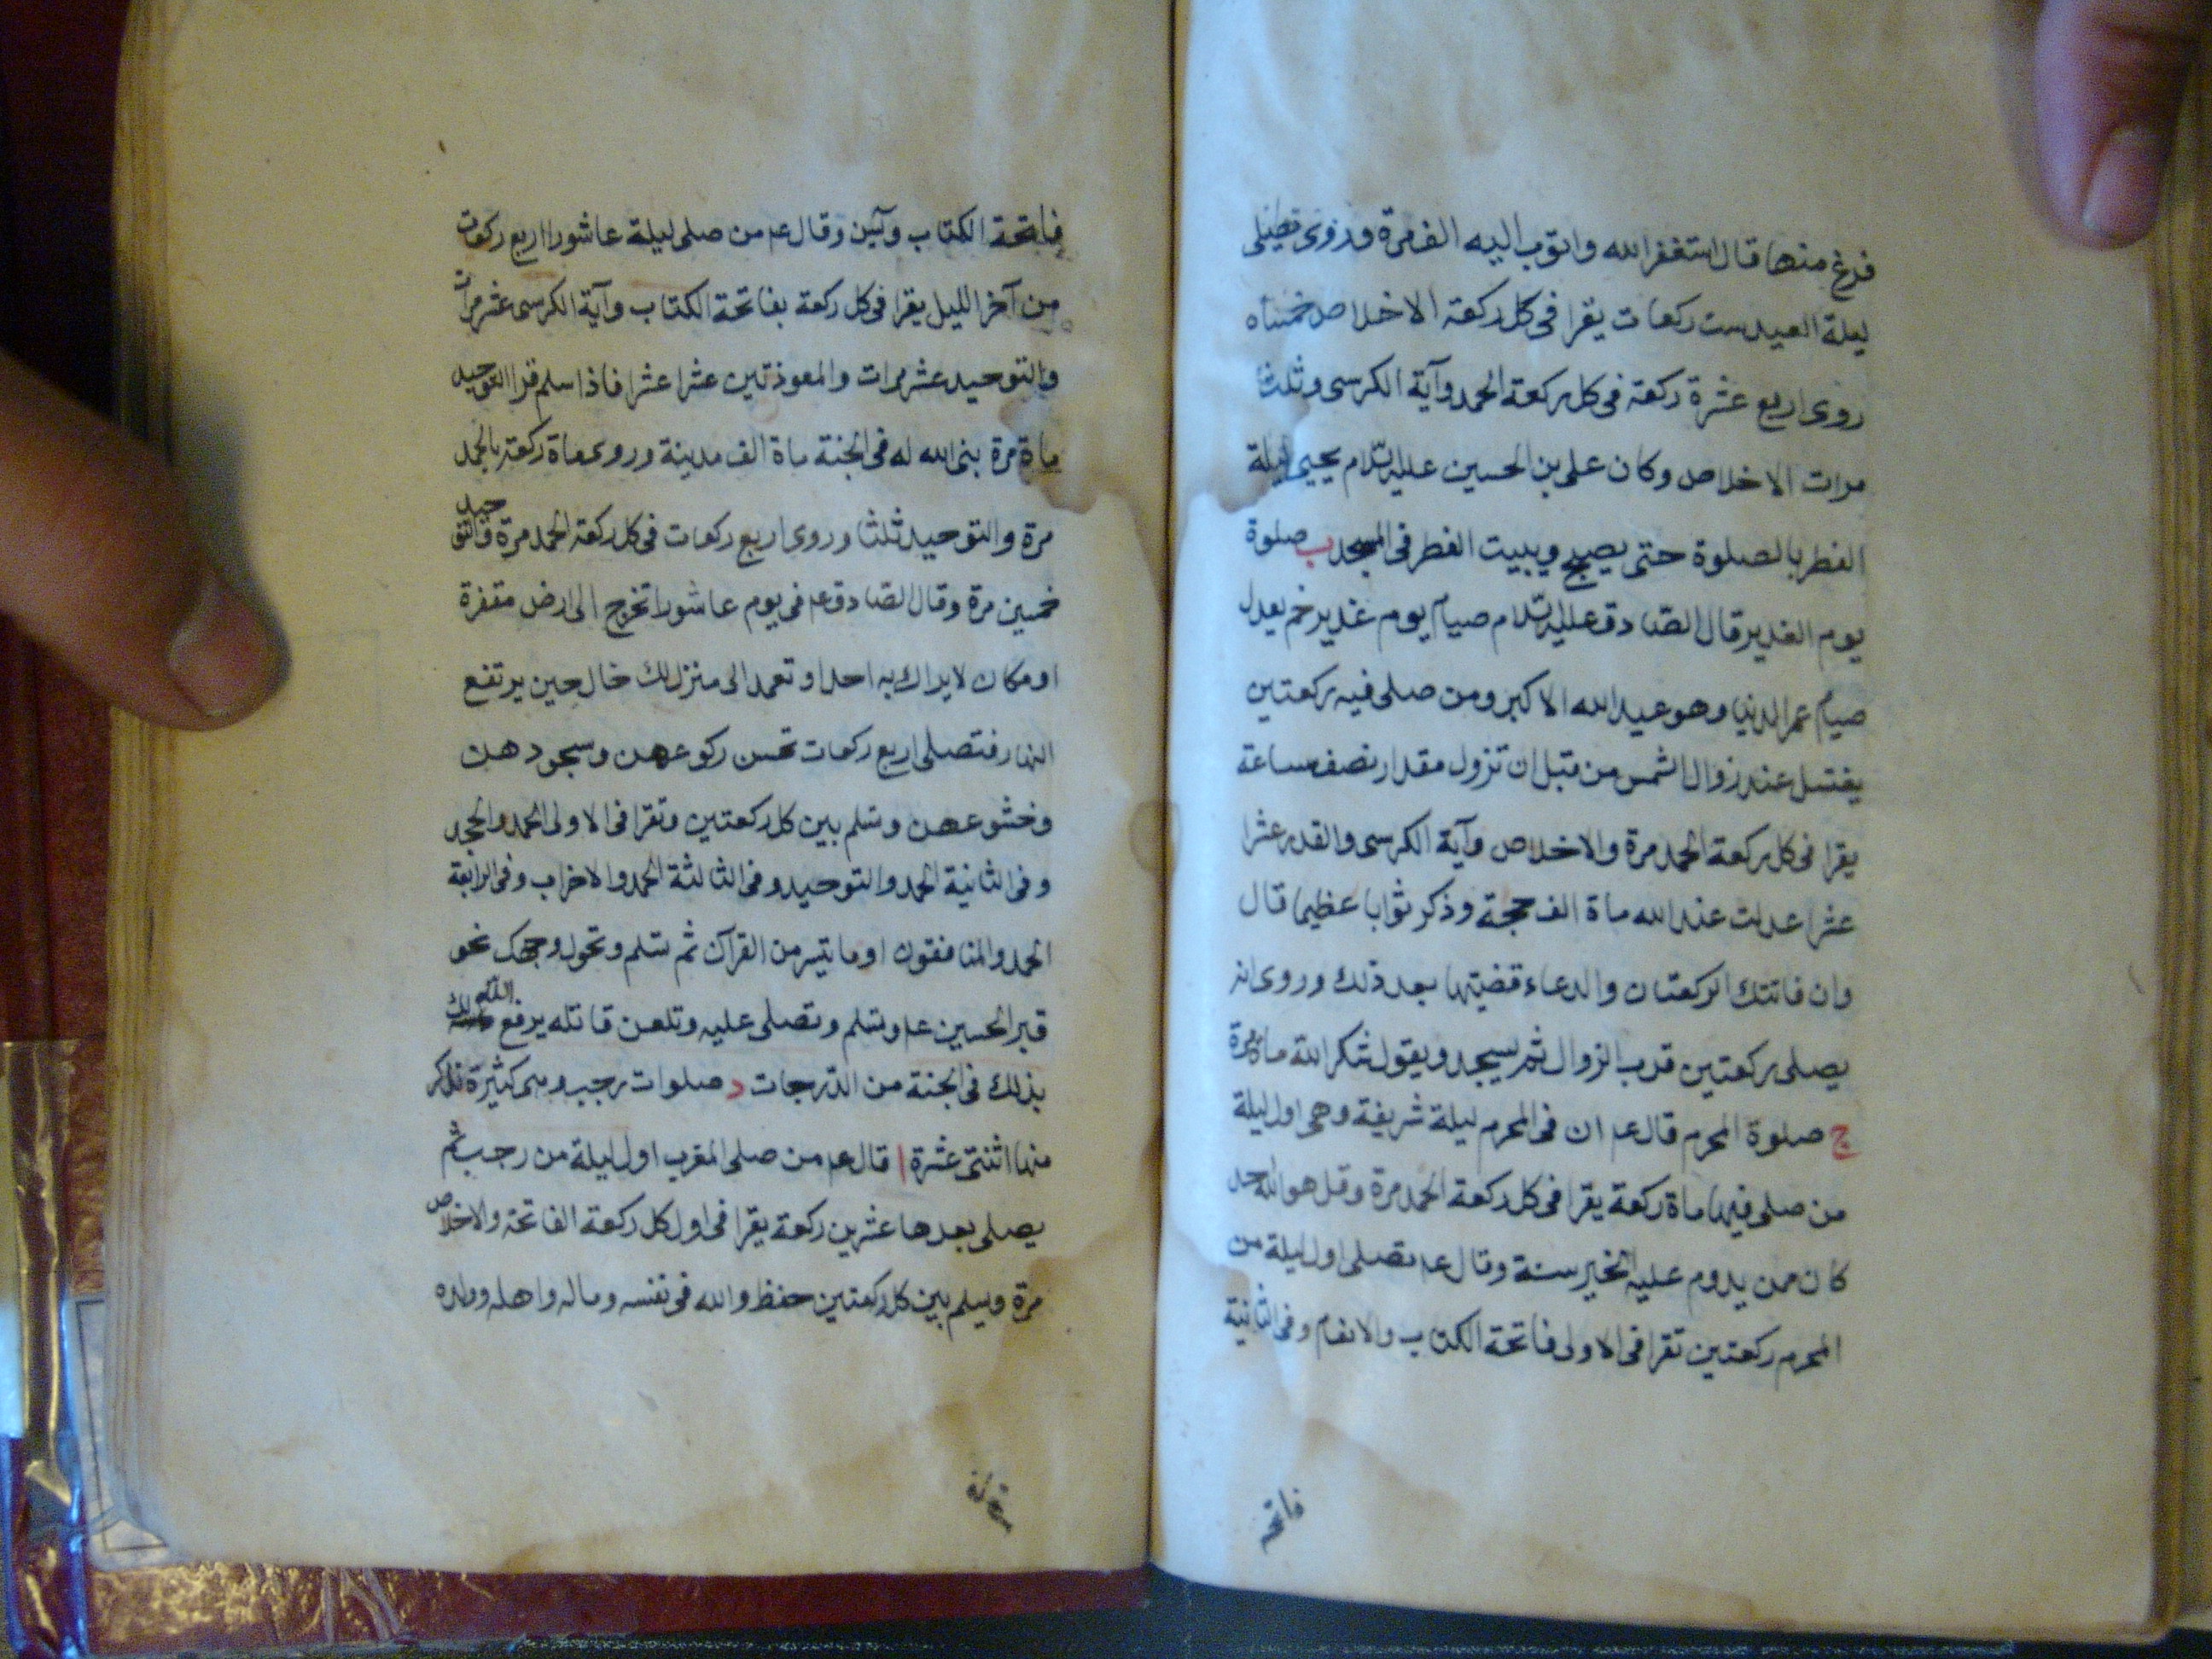 فرغ منها قال استغفر الله واتوب اليه الف مرة وروى تصلى
ليلة العيد ست ركعات يقرا فى كل ركعة الاخلاص خمسا و
روى اربع عشرة ركعة فى كل ركعة الحمد وآية الكرسى وثلث
مرات الاخلاص وكان على بن الحسين عليه السلام يحيى ليلة
الفطر بالصلوة حتى يصبح ويبيت الفطر فى المسجد ب صلوة
يوم الغدير قال الصادق عليه السلام صيام يوم غدير خم يعدل
صيام عمر الدنيا وهو عيد الله الاكبر ومن صلى فيه ركعتين
يغتسل عند زوال الشمس من قبل ان تزول مقدار نصف ساعة
يقرا فى كل ركعة الحمد مرة والاخلاص وآية الكرسى والقدر عشرا
عشرا عدلت عند الله ماة الف حجة وذكر ثوابا عظيما قال
وان فاتتك الركعتان والدعاء قضيتها بعد ذلك وروى انه
يصلى ركعتين قرب الزوال ثم يسجد ويقول شكرا لله ماة مرة
ج صلوة المحرم قال عم ان فى المحرم ليلة شريفة وهى اول ليلة
من صلى فيها ماة ركعة يقرا فى كل ركعة الحمد مرة وقل هو الله احد
كان ممن يدوم عليه الخير سنة وقال عم تصلى اول ليلة من
المحرم ركعتين تقرا فى الاولى فاتحة الكتاب والانعام وفى الثانية
فاتحة
فاتحة الكتاب ويس وقال عم من صلى ليلة عاشورا اربع ركعات
من آخر الليل يقرا فى كل ركعة بفاتحة الكتاب وآية الكرسى عشر مرات
والتوحيد عشر مرات والمعوذتين عشرا عشرا فاذا سلم قرا التوحيد
ماة مرة بنى الله له فى الجنة ماة الف مدينة وروى ماة ركعة بالحمد
مرة والتوحيد ثلثا وروى اربع ركعات فى كل ركعة الحمد مرة والتوحيد
خمسين مرة وقال الصادق عم فى يوم عاشورا تخرج الى ارض مقفرة
او مكان لا يراك به احد او تعمد الى منزل لك خال حين يرتفع
النهار فتصلى اربع ركعات تحسن ركوعهن وسجودهن
وخشوعهن وتسلم بين كل ركعتين وتقرا فى الاولى الحمد والجحد
وفى الثانية الحمد والتوحيد وفى الثالثة الحمد والاحزاب وفى الرابعة
الحمد والمنافقون او ما تيسر من القرآن ثم تسلم وتحول وجهك نحو
قبر الحسين عم وتسلم وتصلى عليه وتلعن قاتله يرفع الله لك
بذلك فى الجنة من الدرجات د صلوات رجب وهى كثيرة نذكر
منها اثنتى عشرة ا قال عم من صلى المغرب اول ليلة من رجب ثم
يصلى بعدها عشرين ركعة يقرا فى اول كل ركعة الفاتحة والاخلاص
مرة ويسلم بين كل ركعتين حفظ والله فى نفسه وماله واهله وولده